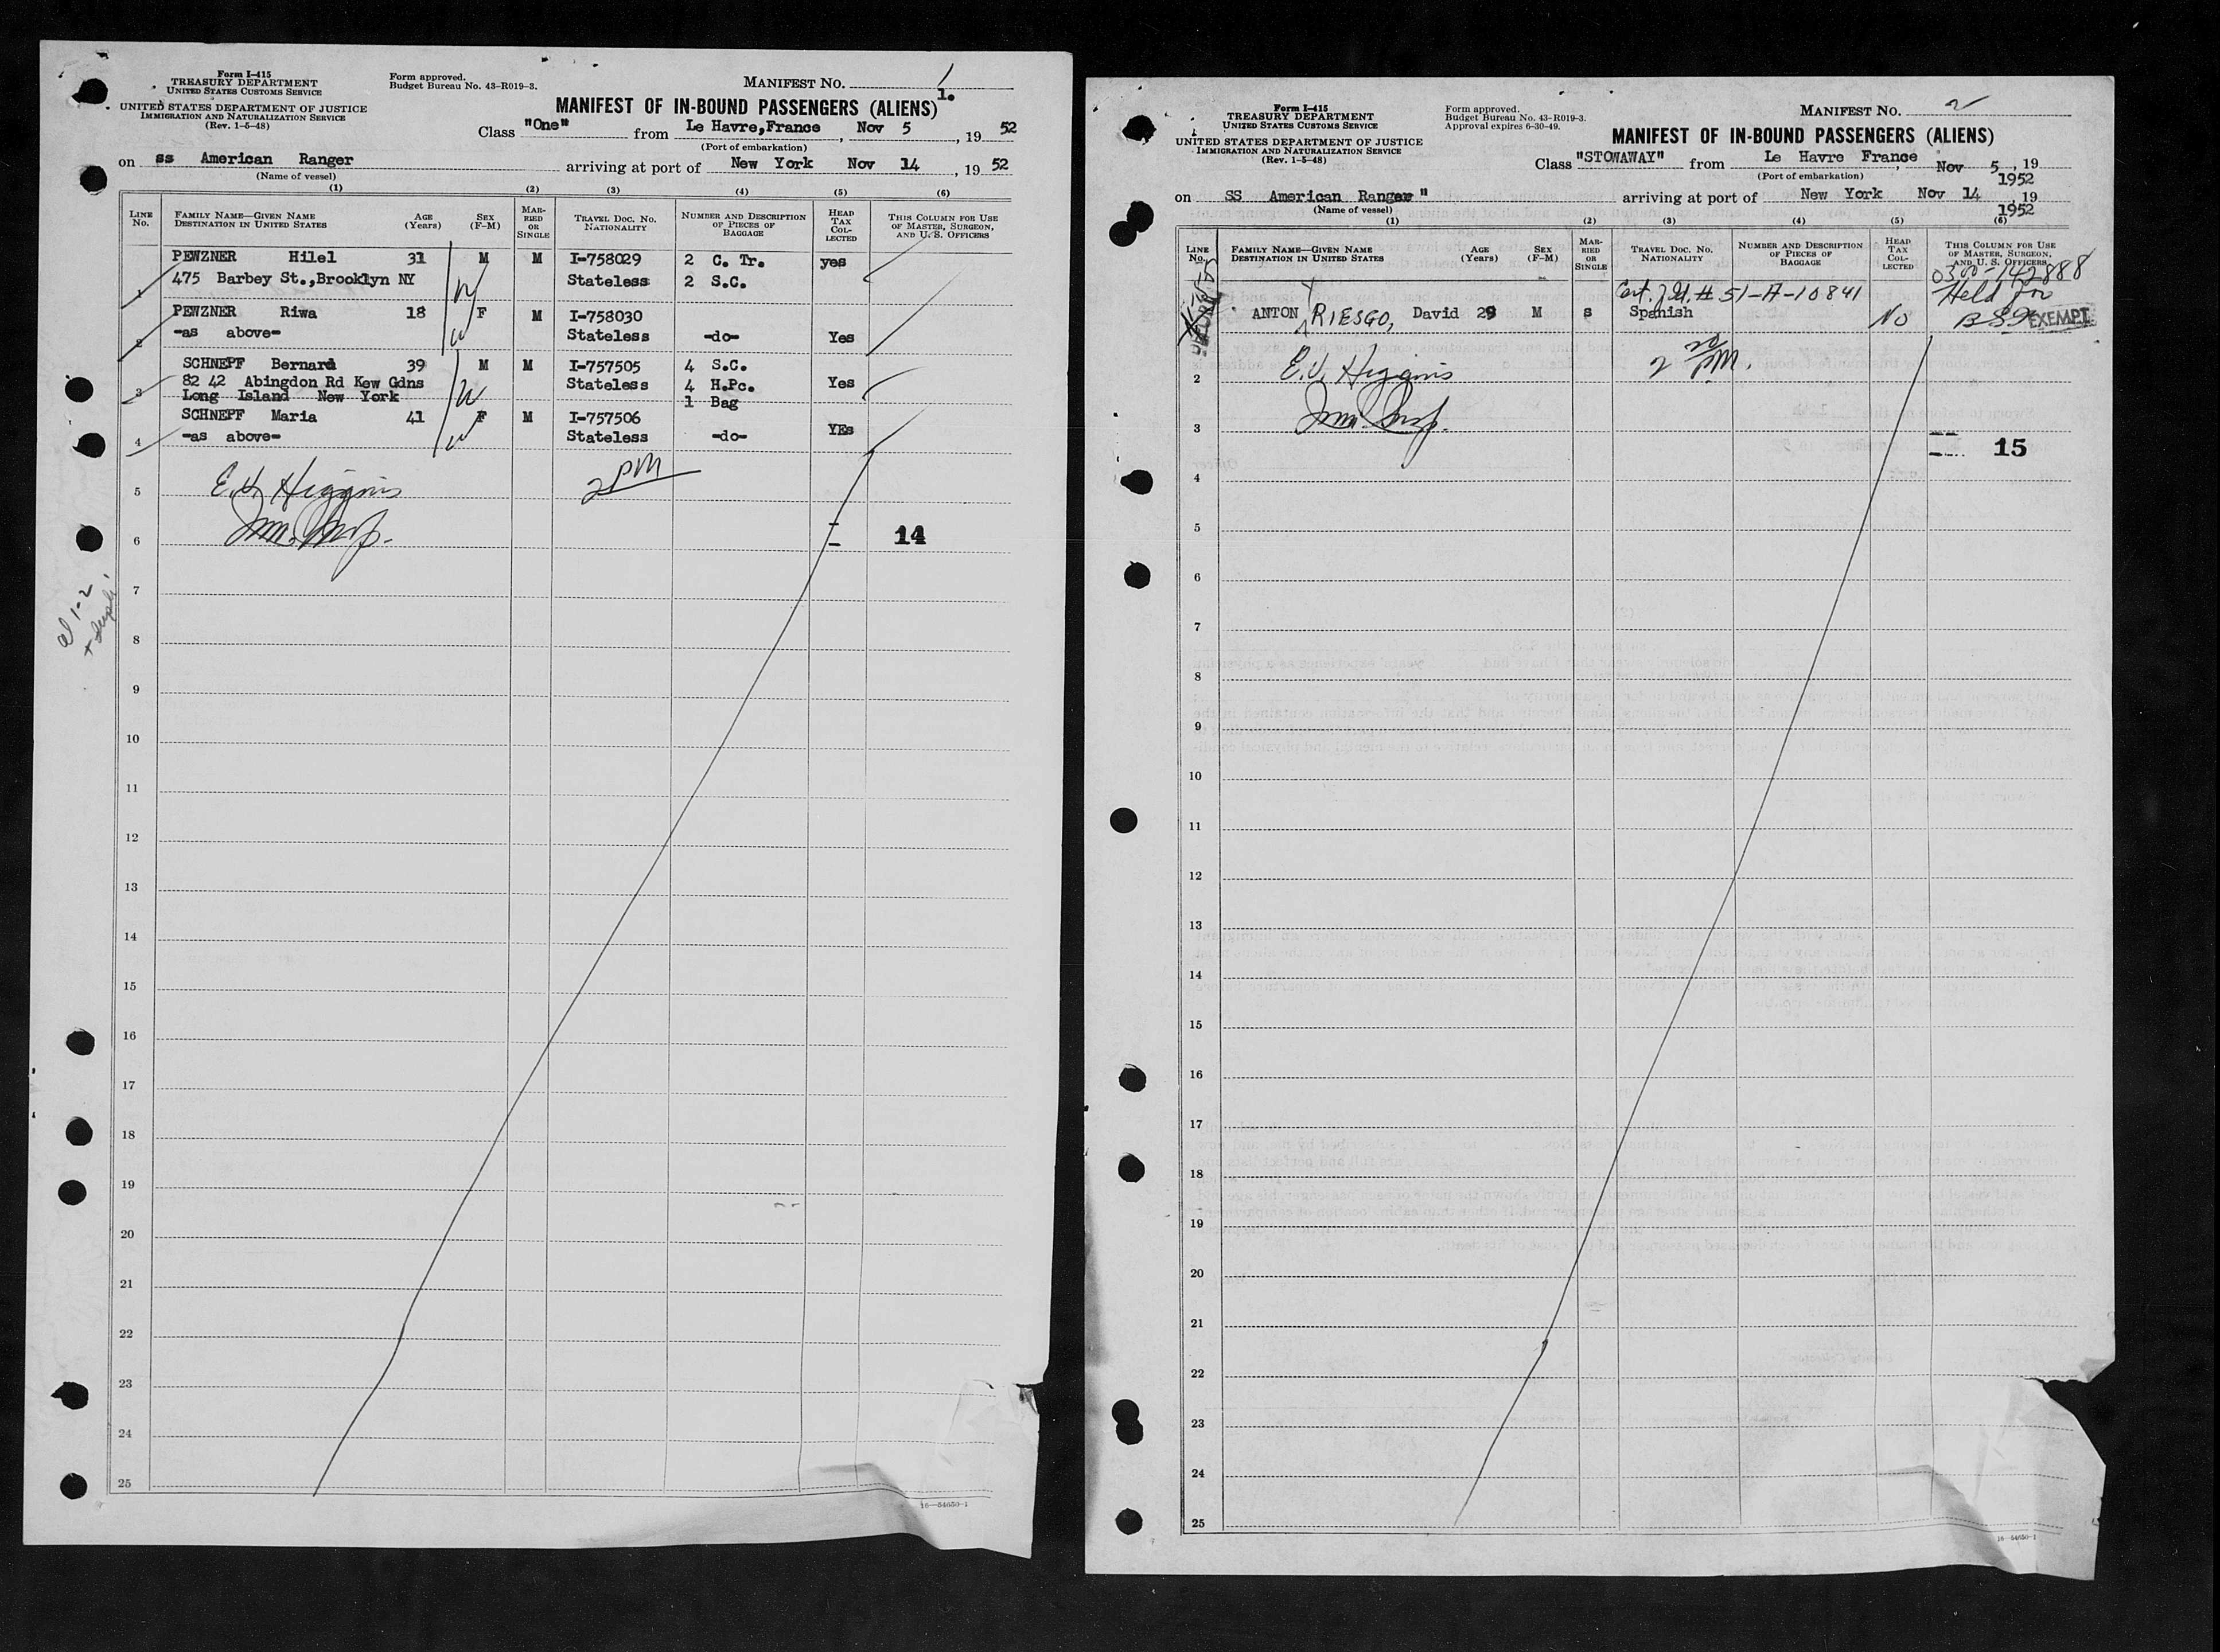 Form I-415
TREASURY DEPARTMENT
UNITED STATES CUSTOMS SERVICE
UNITED STATES DEPARTMENT OF JUSTICE
IMMIGRATION AND NATURALIZATION SERVICE
(Rev. 1-5-48)
Form approved.
Budget Bureau No. 43-R019-3.
MANIFEST NO. 1
MANIFEST OF IN-BOUND PASSENGERS (ALIENS) 1.
Class "One" from Le Havre,France, Nov 5, 19 52
(Port of embarkation)
on ss American Ranger arriving at port of New York Nov 14, 19 52
(Name of vessel)
(1) (2) (3) (4) (5) (6)
LINE No. FAMILY NAME—GIVEN NAME DESTINATION IN UNITED STATES AGE (Years) SEX (F-M) MARRIED OR SINGLE TRAVEL DOC. NO. NATIONALITY NUMBER AND DESCRIPTION OF PIECES OF BAGGAGE HEAD TAX COLLECTED THIS COLUMN FOR USE OF MASTER, SURGEON, AND U. S. OFFICERS
PEWZNER Hilel 31 M M I-758029 2 C. Tr. yes
1 475 Barbey St.,Brooklyn NY Stateless 2 S.C.
PEWZNER Riwa 18 F M I-758030
2 -as above- Stateless -do- Yes
SCHNEPF Bernard 39 M M I-757505 4 S.C.
3 82 42 Abingdon Rd Kew Gdns Stateless 4 H.Pc. Yes
Long Island New York 1 Bag
SCHNEPF Maria 41 F M I-757506
4 -as above- Stateless -do- YEs
5 E.J. Higgins 2 PM
6 Imm. Insp. 14
7
8
9
10
11
12
13
14
15
16
17
18
19
20
21
22
23
24
25
16—54650-1
Form I-415
TREASURY DEPARTMENT
UNITED STATES CUSTOMS SERVICE
UNITED STATES DEPARTMENT OF JUSTICE
IMMIGRATION AND NATURALIZATION SERVICE
(Rev. 1-5-48)
Form approved.
Budget Bureau No. 43-R019-3.
Approval expires 6-30-49.
MANIFEST NO. 2
MANIFEST OF IN-BOUND PASSENGERS (ALIENS)
Class "STOWAWAY" from Le Havre France, Nov 5, 19
(Port of embarkation) 1952
on SS American Ranger" arriving at port of New York Nov 14, 19
(Name of vessel) 1952
(1) (2) (3) (4) (5) (6)
LINE No. FAMILY NAME—GIVEN NAME DESTINATION IN UNITED STATES AGE (Years) SEX (F-M) MARRIED OR SINGLE TRAVEL DOC. NO. NATIONALITY NUMBER AND DESCRIPTION OF PIECES OF BAGGAGE HEAD TAX COLLECTED THIS COLUMN FOR USE OF MASTER, SURGEON, AND U. S. OFFICERS
0300-142888
# 51-A-10841 Held for
ANTON RIESGO, David 29 M s Spanish No BSI EXEMPT
2 E.J. Higgins 2 PM.
3 Imm. Insp.
15
4
5
6
7
8
9
10
11
12
13
14
15
16
17
18
19
20
21
22
23
24
25
16—54650-1